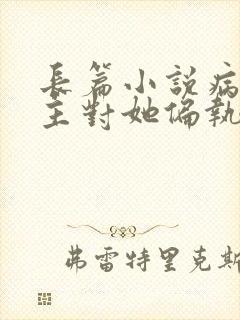 長篇小説病
主對她偏執
弗雷特里克斯